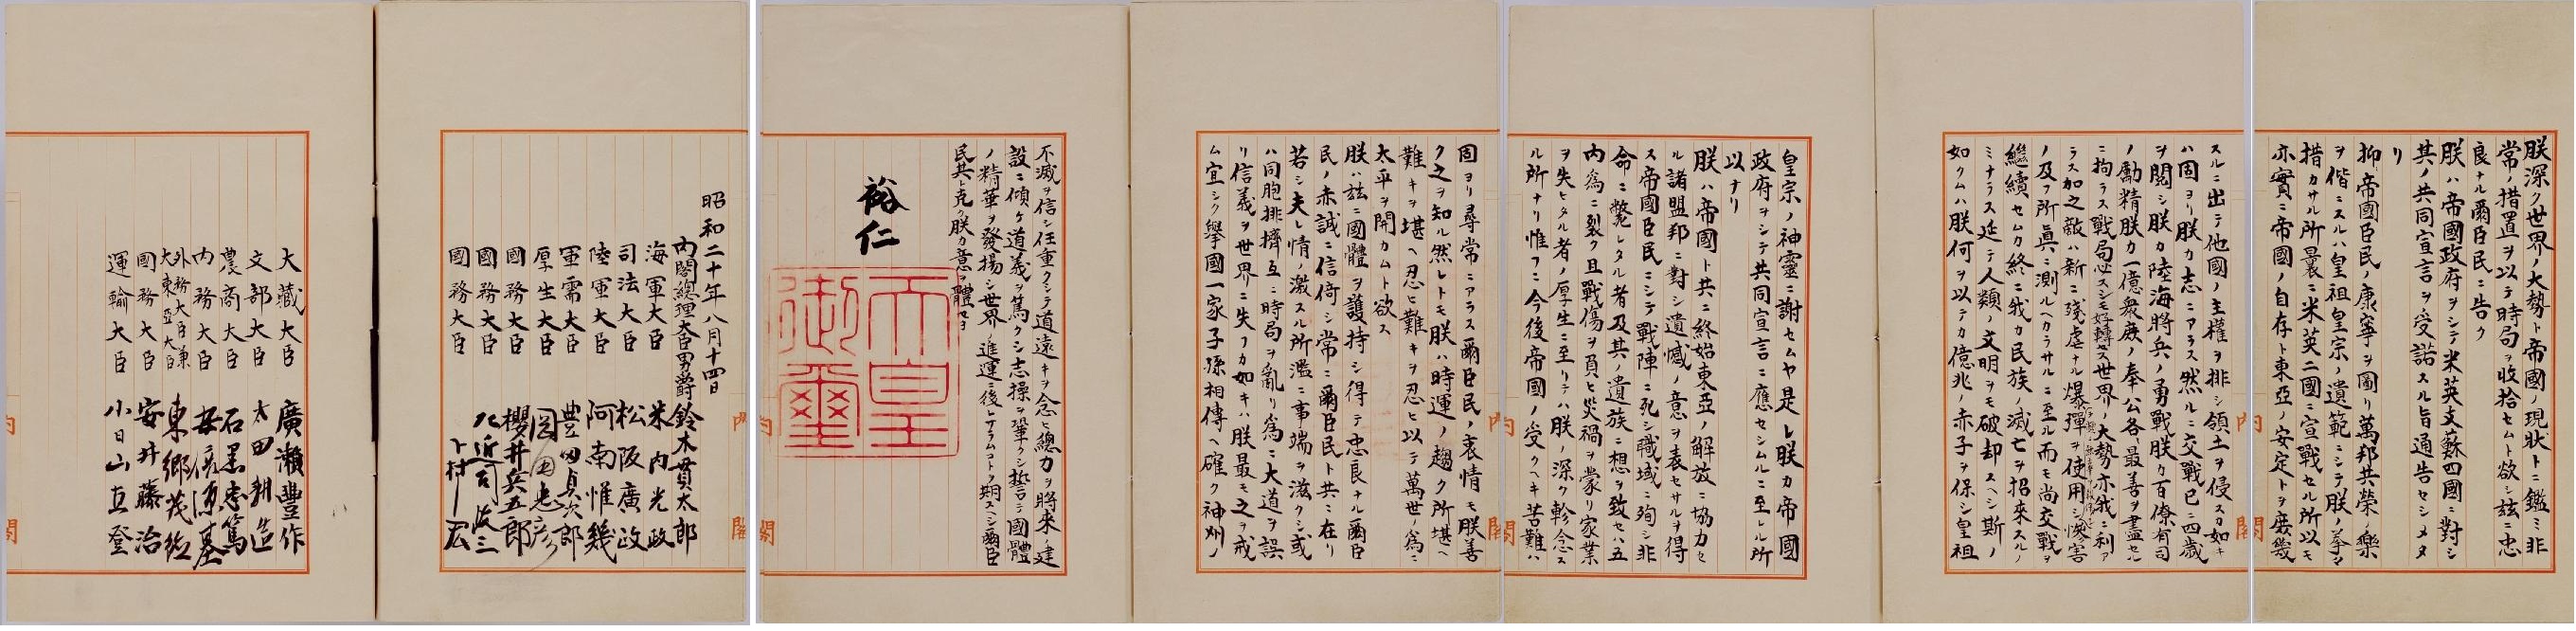 朕深ク世界ノ大勢ト帝國ノ現状トニ鑑ミ非
常ノ措置ヲ以テ時局ヲ收拾セムト欲シ茲ニ忠
良ナル爾臣民ニ告ク
朕ハ帝國政府ヲシテ米英支蘇四國ニ對シ
其ノ共同宣言ヲ受諾スル旨通告セシメタ
リ
抑〻帝國臣民ノ康寧ヲ圖リ萬邦共榮ノ樂
ヲ偕ニスルハ皇祖皇宗ノ遺範ニシテ朕ノ拳〻
措カサル所曩ニ米英二國ニ宣戰セル所以モ
亦實ニ帝國ノ自存ト東亞ノ安定トヲ庶幾
スルニ出テ他國ノ主權ヲ排シ領土ヲ侵スカ如キ
ハ固ヨリ朕カ志ニアラス然ルニ交戰已ニ四歳
ヲ閲シ朕カ陸海將兵ノ勇戰朕カ百僚有司
ノ勵精朕カ一億衆庶ノ奉公各〻最善ヲ盡セル
ニ拘ラス戰局必スシモ好轉セス世界ノ大勢亦我ニ利ア
ラス加之敵ハ新ニ殘虐ナル爆彈ヲ使用シテ惨害
ノ及フ所眞ニ測ルヘカラサルニ至ル而モ尚交戰ヲ
繼續セムカ終ニ我カ民族ノ滅亡ヲ招來スルノ
ミナラス延テ人類ノ文明ヲモ破却スヘシ斯ノ
如クムハ朕何ヲ以テカ億兆ノ赤子ヲ保シ皇祖
皇宗ノ神靈ニ謝セムヤ是レ朕カ帝國
政府ヲシテ共同宣言ニ應セシムルニ至レル所
以ナリ
朕ハ帝國ト共ニ終始東亞ノ解放ニ協力セ
ル諸盟邦ニ對シ遺憾ノ意ヲ表セサルヲ得
ス帝國臣民ニシテ戰陣ニ死シ職域ニ殉シ非
命ニ斃レタル者及其ノ遺族ニ想ヲ致セハ五
内爲ニ裂ク且戰傷ヲ負ヒ災禍ヲ蒙リ家業
ヲ失ヒタル者ノ厚生ニ至リテハ朕ノ深ク軫念ス
ル所ナリ惟フニ今後帝國ノ受クヘキ苦難ハ
固ヨリ尋常ニアラス爾臣民ノ衷情モ朕善
ク之ヲ知ル然レトモ朕ハ時運ノ趨ク所堪ヘ
難キヲ堪ヘ忍ヒ難キヲ忍ヒ以テ萬世ノ爲ニ
太平ヲ開カムト欲ス
朕ハ茲ニ國體ヲ護持シ得テ忠良ナル爾臣
民ノ赤誠ニ信倚シ常ニ爾臣民ト共ニ在リ
若シ夫レ情ノ激スル所濫ニ事端ヲ滋クシ或
ハ同胞排擠互ニ時局ヲ亂リ爲ニ大道ヲ誤
リ信義ヲ世界ニ失フカ如キハ朕最モ之ヲ戒
ム宜シク擧國一家子孫相傳ヘ確ク神州ノ
不滅ヲ信シ任重クシテ道遠キヲ念ヒ總力ヲ將來ノ建
設ニ傾ケ道義ヲ篤クシ志操ヲ鞏クシ誓テ國體
ノ精華ヲ發揚シ世界ノ進運ニ後レサラムコトヲ期スヘシ爾臣
民其レ克ク朕カ意ヲ體セヨ
裕仁
天皇
御璽
昭和二十年八月十四日
内閣總理大臣男爵 鈴木貫太郎
海軍大臣 米内光政
司法大臣 松阪廣政
陸軍大臣 阿南惟幾
軍需大臣 豊田貞次郎
厚生大臣 岡田忠彦
國務大臣 櫻井兵五郎
國務大臣 左近司政三
國務大臣 下村宏
大藏大臣 廣瀬豐作
文部大臣 太田耕造
農商大臣 石黒忠篤
内務大臣 安倍源基
外務大臣兼
大東亞大臣 東郷茂徳
國務大臣 安井藤治
運輸大臣 小日山直登
内閣
内閣
内閣
内閣